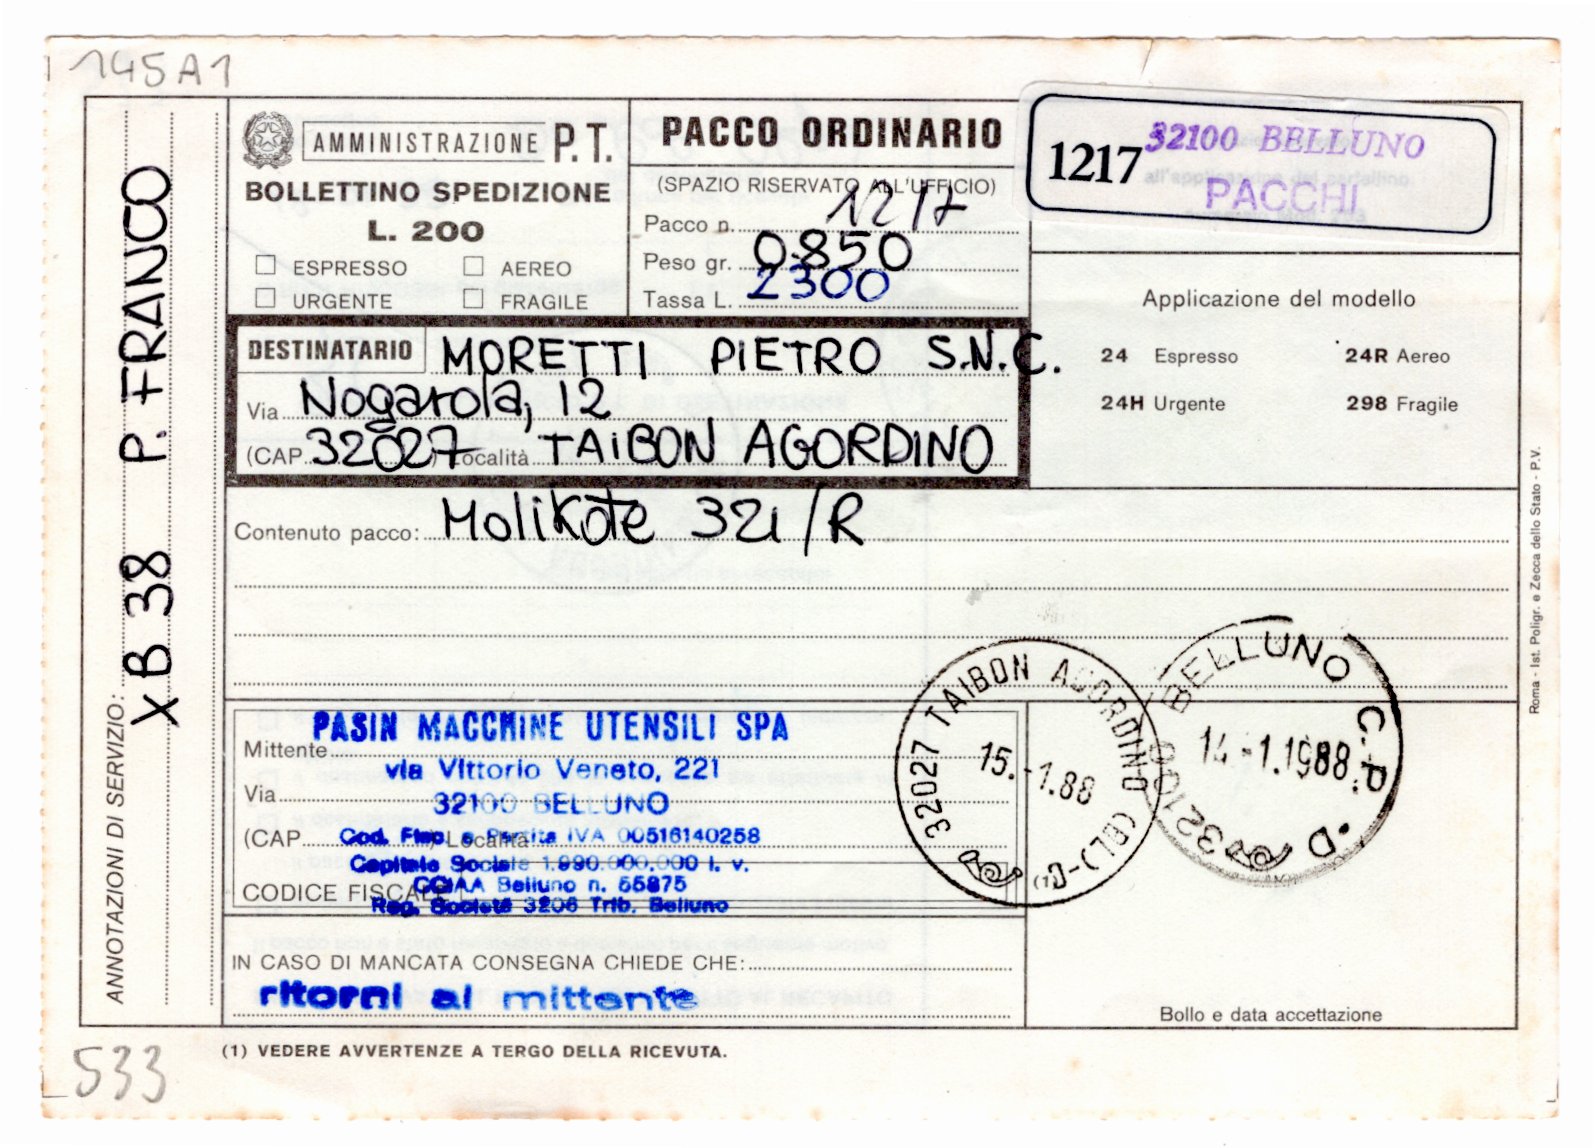 145A1
AMMINISTRAZIONE P.T.
BOLLETTINO SPEDIZIONE
L. 200
ESPRESSO AEREO
URGENTE FRAGILE
PACCO ORDINARIO
(SPAZIO RISERVATO ALL'UFFICIO)
Pacco n. 1217
Peso gr. 0850
Tassa L. 2300
1217 32100 BELLUNO
PACCHI
Applicazione del modello
24 Espresso 24R Aereo
24H Urgente 298 Fragile
DESTINATARIO MORETTI PIETRO S.N.C.
Via Nogarola, 12
(CAP 32027) Località TAIBON AGORDINO
Contenuto pacco: Molikote 321/R
ANNOTAZIONI DI SERVIZIO: XB 38 P. FRANCO
PASIN MACCHINE UTENSILI SPA
Mittente
via Vittorio Veneto, 221
Via
32100 BELLUNO
(CAP ) Località
Cod. Fisc. e Partita IVA 00516140258
Capitale Sociale 1.990.000.000 i. v.
CCIAA Belluno n. 55875
CODICE FISCALE
Reg. Società 3206 Trib. Belluno
32027 TAIBON AGORDINO (BL)-D
15.-1.88
(1)
32100 BELLUNO C.P. -D
14.-1.1988
IN CASO DI MANCATA CONSEGNA CHIEDE CHE:
ritorni al mittente
Bollo e data accettazione
(1) VEDERE AVVERTENZE A TERGO DELLA RICEVUTA.
533
Roma - Ist. Poligr. e Zecca dello Stato - P.V.